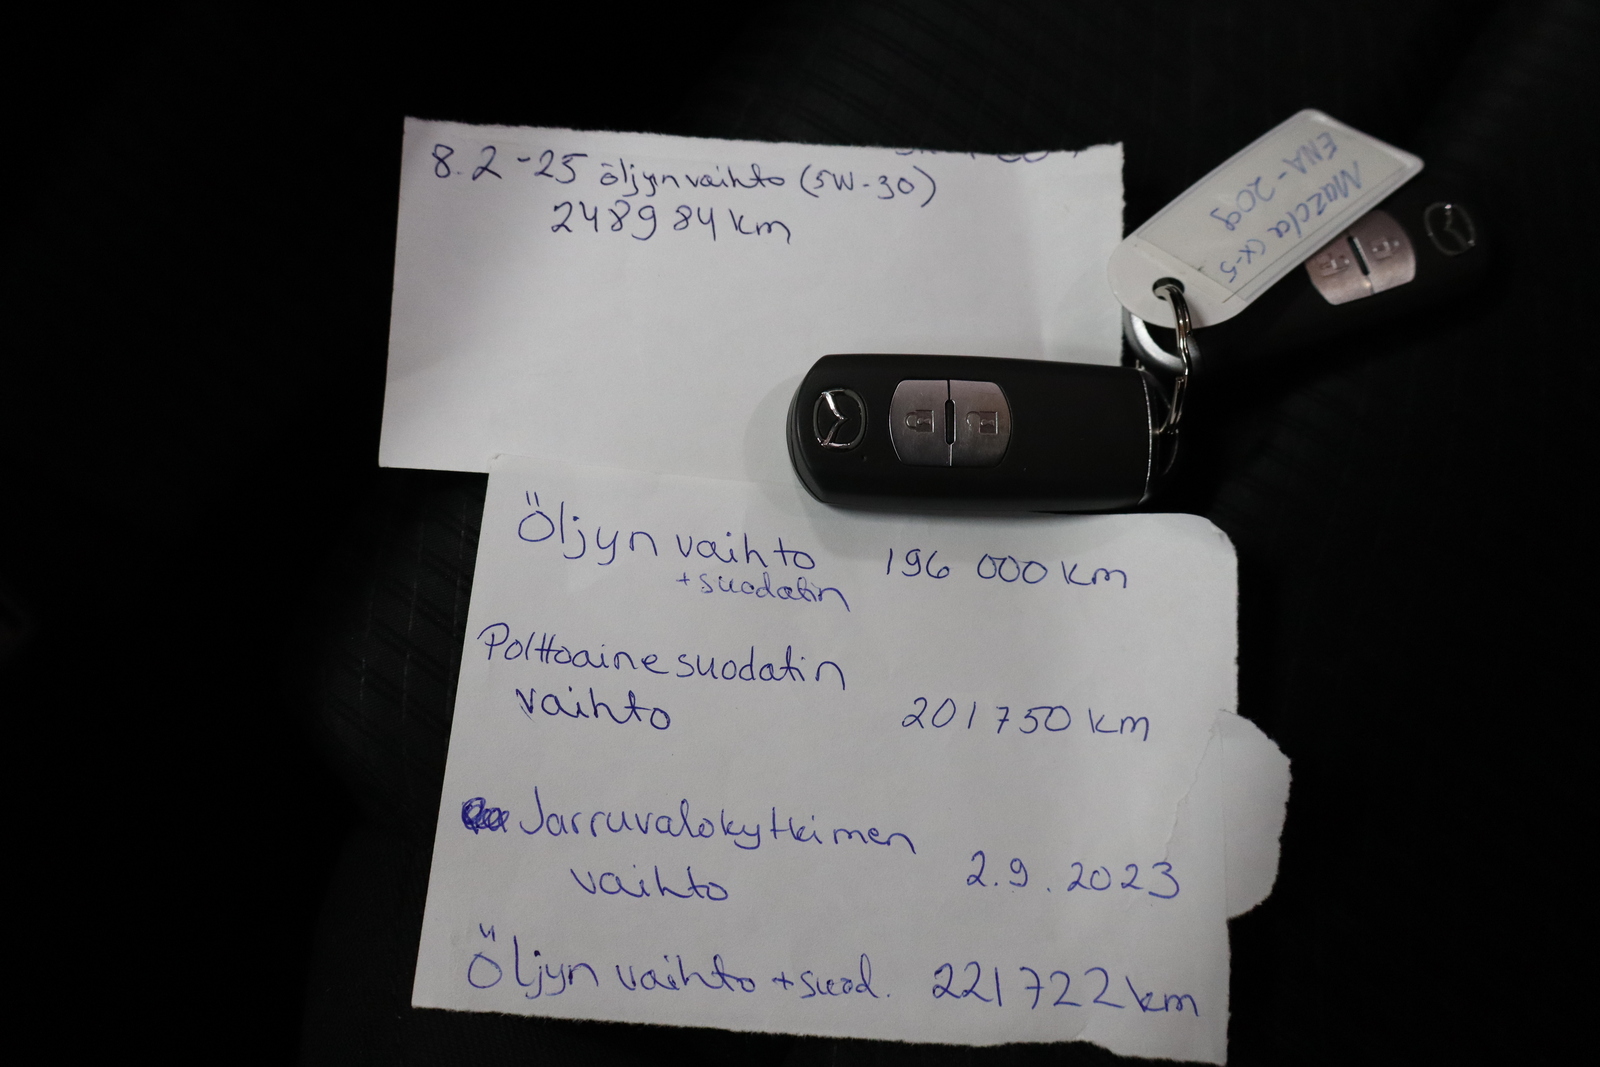 8.2 -25 öljynvaihto (5W-30)
248984 km
Mazda CX-5
ENA-209
Öljyn vaihto 196 000 km
+suodatin
Polttoainesuodatin
vaihto 201750 km
Jarruvalokytkimen
vaihto 2.9.2023
Öljyn vaihto +suod. 221722 km